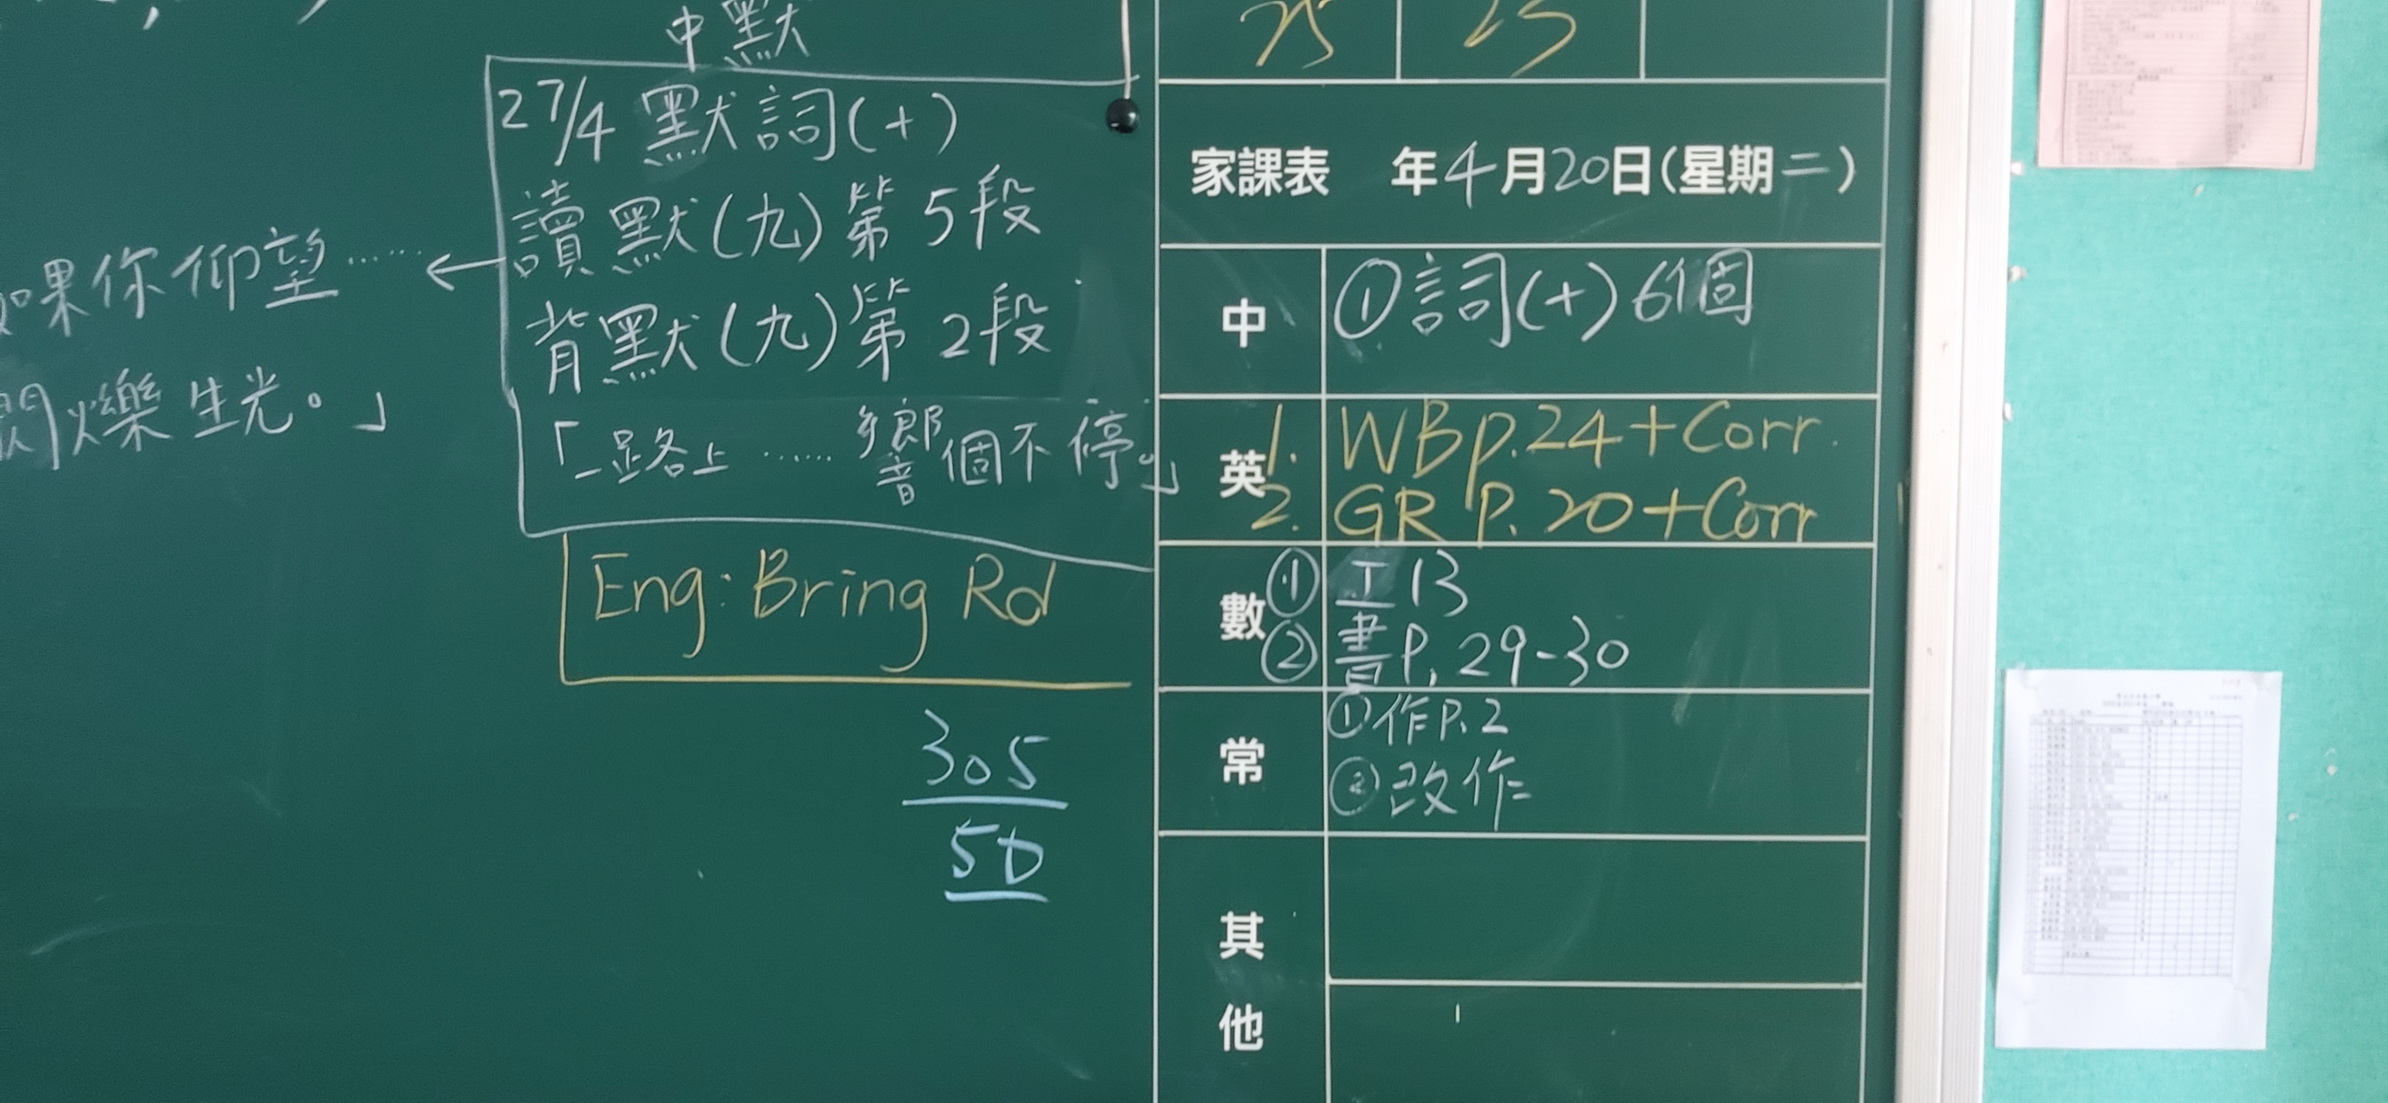 中默
27/4 默詞(十)
讀默(九)第5段
如果你仰望……
閃爍生光。」
背默(九)第2段
「一路上……響個不停。」
Eng: Bring Rd
305
50
25 25
家課表 年4月20日(星期二)
中 ①詞(十)6個
英 1. WB p.24+Corr.
2. GR P.20+Corr
數 ① 工13
② 書P.29-30
常 ①作P.2
②改作
其他